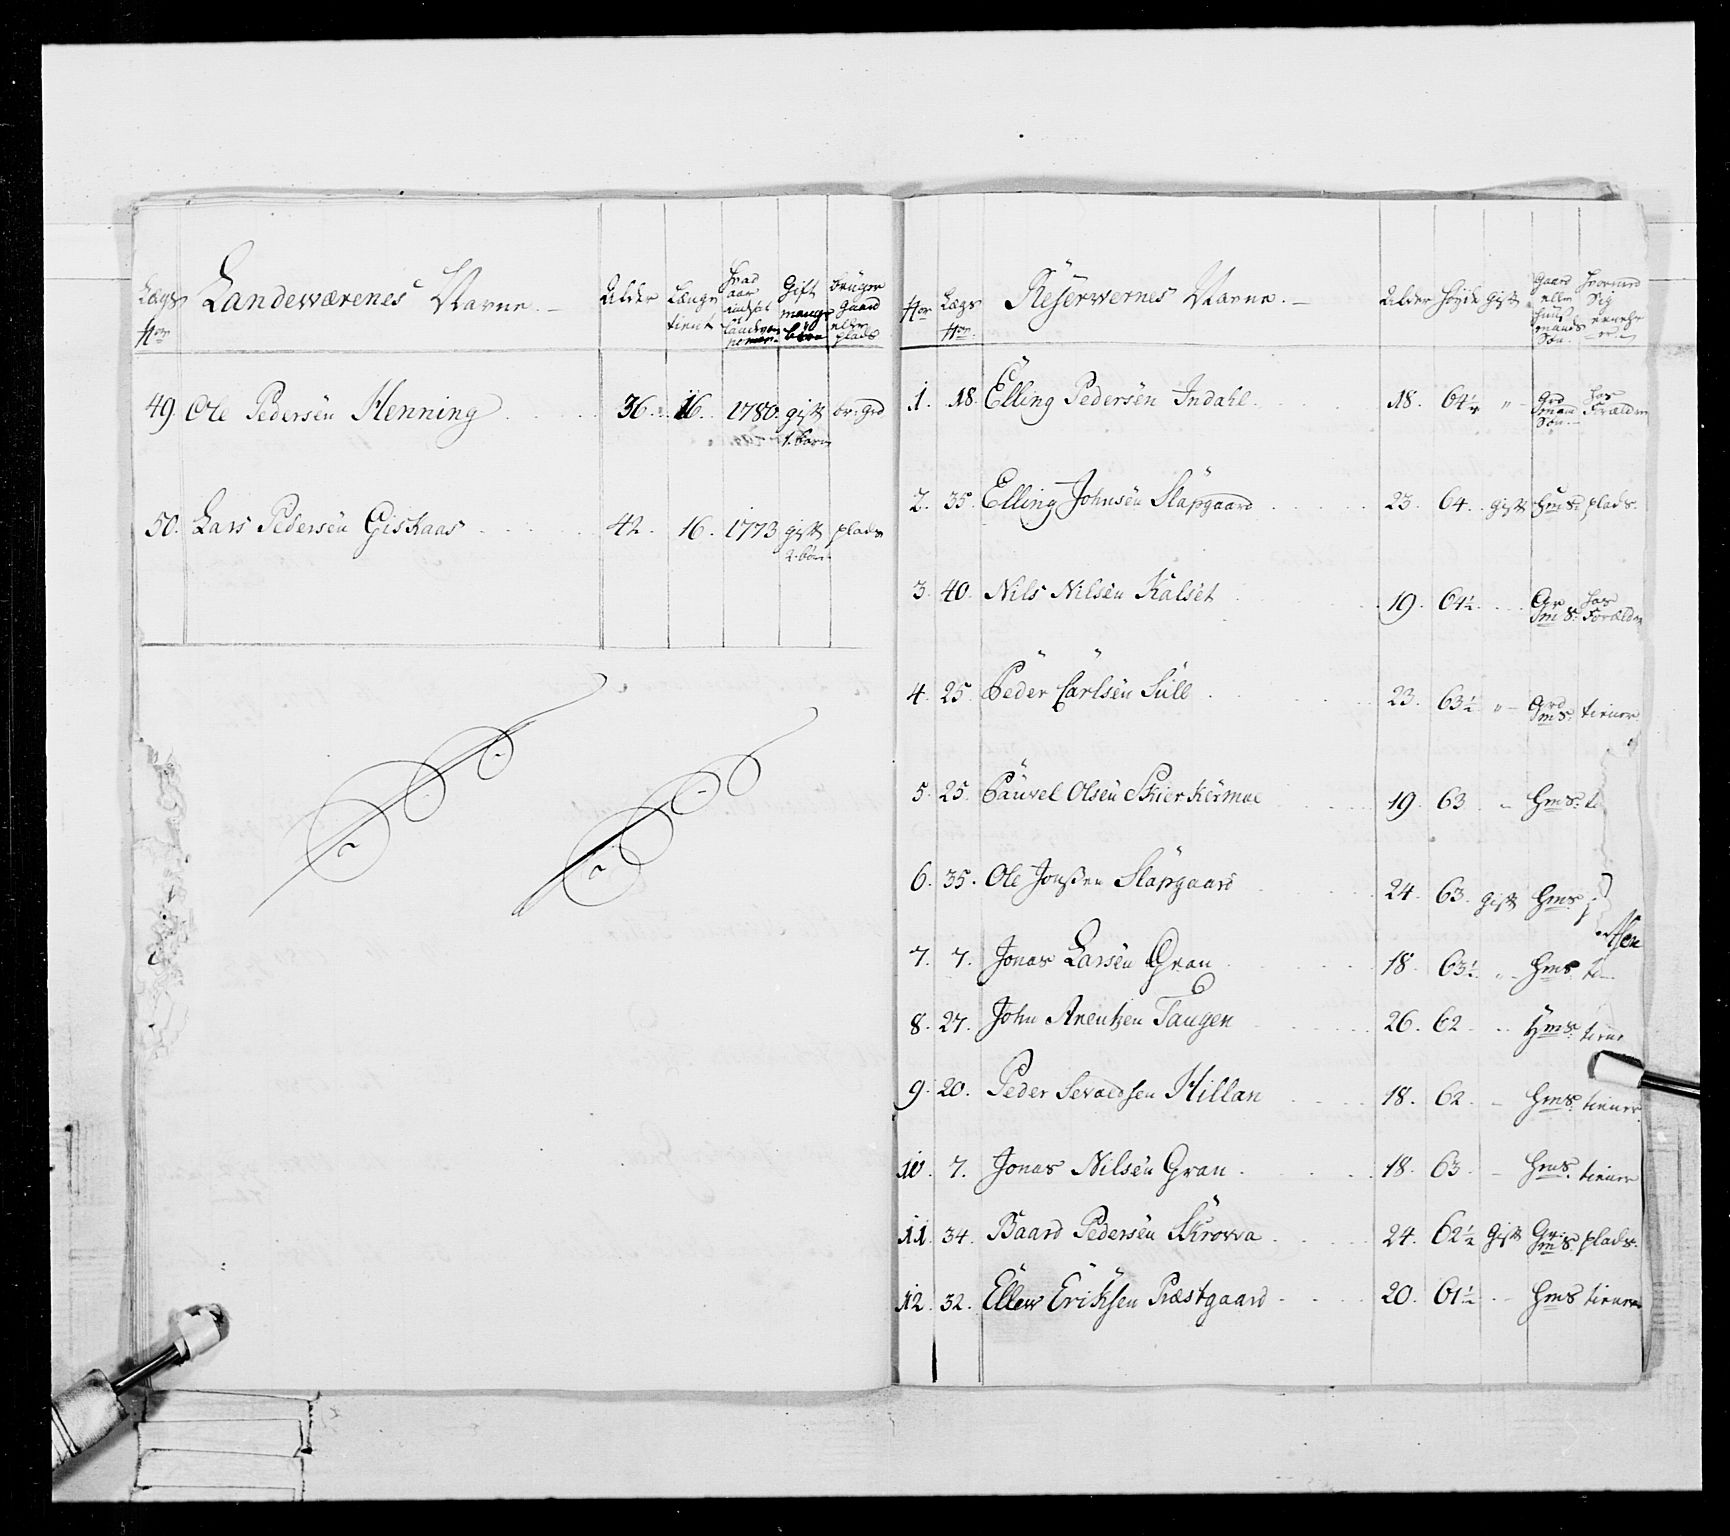 Lægs Nor Landeværenes Navne. Alder Længe tient Hvad aar Gift mange börn brüger Gaard eller plads
49. Ole Pedersën Henning 36. 16. 1780. gift br: Grd
1. barn
50. Lars Pedersën Giskaas 42. 16. 1773 gift plads
2. börn
Nor Lægs Nor. Reservernes Navne. Alder Høyde Gift Gaard eller Huus mands Søn. Hvormed Sig ernehrer
1. 18. Elling Pedersën Indahl 18. 64¼ " Grd mand Søn. hos Forældre
2. 35. Elling Johnsën Slapgaard 23. 64. gift Hms: plads.
3. 40. Nils Nilsën Kalsët 19. 64½ Gr mS: hos Forældre
4. 25. Peder Carlsën Süll 23. 63½ " Grd ms: tiener
5. 25. Paüvel Olsën Skierkermoe 19. 63 Hms:
6. 35. Ole Jonssen Slapgaard 24. 63. gift Hms:
7. 7. Jonas Larsën Gran 18. 63½ " Hms
8. 27. John Arentzen Taugen 26. 62 Hms: tiene
9. 20. Peder Sevaldsen Hillan 18. 62. Hms: tiener
10. 7. Jonas Nilsën Gran 18. 63. Hms. tiener
11. 34. Baard Pedersën Skrovva 24. 62½ Gift Gr: mS. plads.
12. 32. Ellew Eriksen Præstgaard 20. 61½ Hms tiener